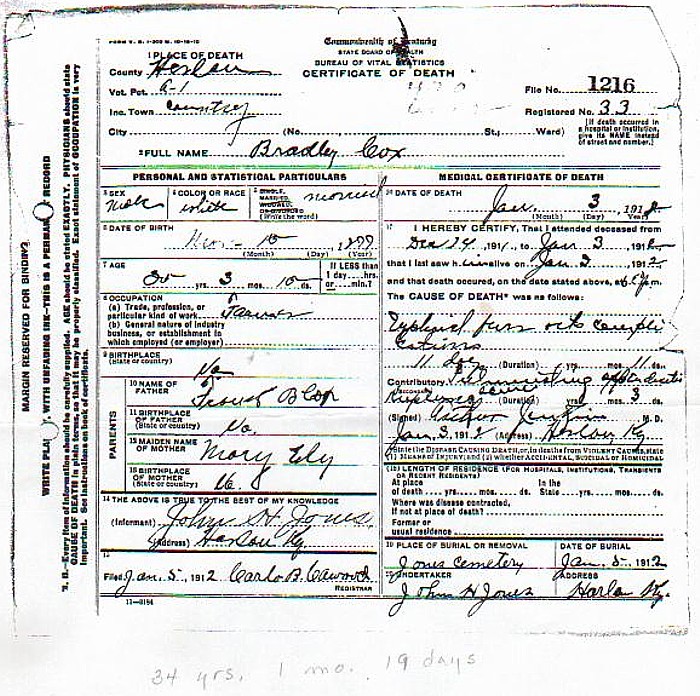 FORM V. S. 1-
Commonwealth of Kentucky
STATE BOARD OF HEALTH
BUREAU OF VITAL STATISTICS
CERTIFICATE OF DEATH
1 PLACE OF DEATH
County Harlan
Vot. Pct. 6-1
Inc. Town Country
City (No. St., Ward)
File No. 1216
Registered No. 33
[If death occurred in a hospital or institution, give its NAME instead of street and number.]
2 FULL NAME Bradley Cox
PERSONAL AND STATISTICAL PARTICULARS
3 SEX Male
4 COLOR OR RACE white
5 SINGLE, MARRIED, WIDOWED, OR DIVORCED (Write the word) married
6 DATE OF BIRTH
(Month) (Day) (Year)
7 AGE yrs. 3 mos. ds.
If LESS than 1 day....hrs. or....min.?
8 OCCUPATION
(a) Trade, profession, or particular kind of work Farmer
(b) General nature of industry business, or establishment in which employed (or employer)
9 BIRTHPLACE
(State or country) Va
PARENTS
10 NAME OF FATHER
11 BIRTHPLACE OF FATHER
(State or country) Va.
12 MAIDEN NAME OF MOTHER Mary Ely
13 BIRTHPLACE OF MOTHER
(State or country) Va.
14 THE ABOVE IS TRUE TO THE BEST OF MY KNOWLEDGE
(Informant) John H. Jones
(Address) Harlan Ky
15
Filed Jan. 5, 1912 Carlo B. Cawood
REGISTRAR
11-3184
MEDICAL CERTIFICATE OF DEATH
16 DATE OF DEATH
Jan. 3, 191
(Month) (Day) (Year)
17 I HEREBY CERTIFY, That I attended deceased from
Dec 24 191, to Jan 3 191
that I last saw him alive on Jan 3 1912
and that death occurred, on the date stated above, at m.
The CAUSE OF DEATH* was as follows:
(Duration) yrs. mos. 11 ds.
Contributory
(Secondary)
(Duration) yrs. mos. 3 ds.
(Signed) M. D.
Jan 3, 191 (Address) Harlan Ky
*State the DISEASE CAUSING DEATH, or, in deaths from VIOLENT CAUSES, state (1) MEANS OF INJURY; and (2) whether ACCIDENTAL, SUICIDAL or HOMICIDAL
18 LENGTH OF RESIDENCE (FOR HOSPITALS, INSTITUTIONS, TRANSIENTS OR RECENT RESIDENTS)
At place of death yrs. mos. ds. In the State yrs. mos. ds.
Where was disease contracted, if not at place of death?
Former or usual residence
19 PLACE OF BURIAL OR REMOVAL DATE OF BURIAL
Jones Cemetery Jan. 5, 1912
20 UNDERTAKER ADDRESS
John H Jones Harlan Ky.
MARGIN RESERVED FOR BINDING
WITH UNFADING INK—THIS IS A PERMAN RECORD
N. B.—Every item of information should be carefully supplied. AGE should be stated EXACTLY. PHYSICIANS should state CAUSE OF DEATH in plain terms, so that it may be properly classified. Exact statement of OCCUPATION is very important. See instructions on back of certificate.
34 yrs. 1 mo. 19 days